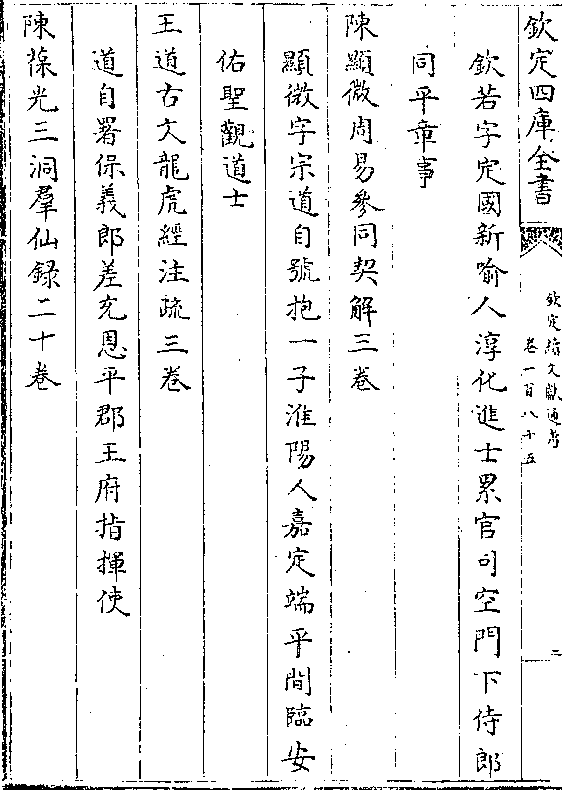 欽定四庫全書
欽定續文獻通考
卷一百八十五
二
欽若字定國新喻人淳化進士累官司空門下侍郎
同平章事
陳顯微周易參同契解三卷
顯微字宗道自號抱一子淮陽人嘉定端平間臨安
佑聖觀道士
王道古文龍虎經注疏三卷
道自署保義郎差充恩平郡王府指揮使
陳葆光三洞羣仙録二十卷